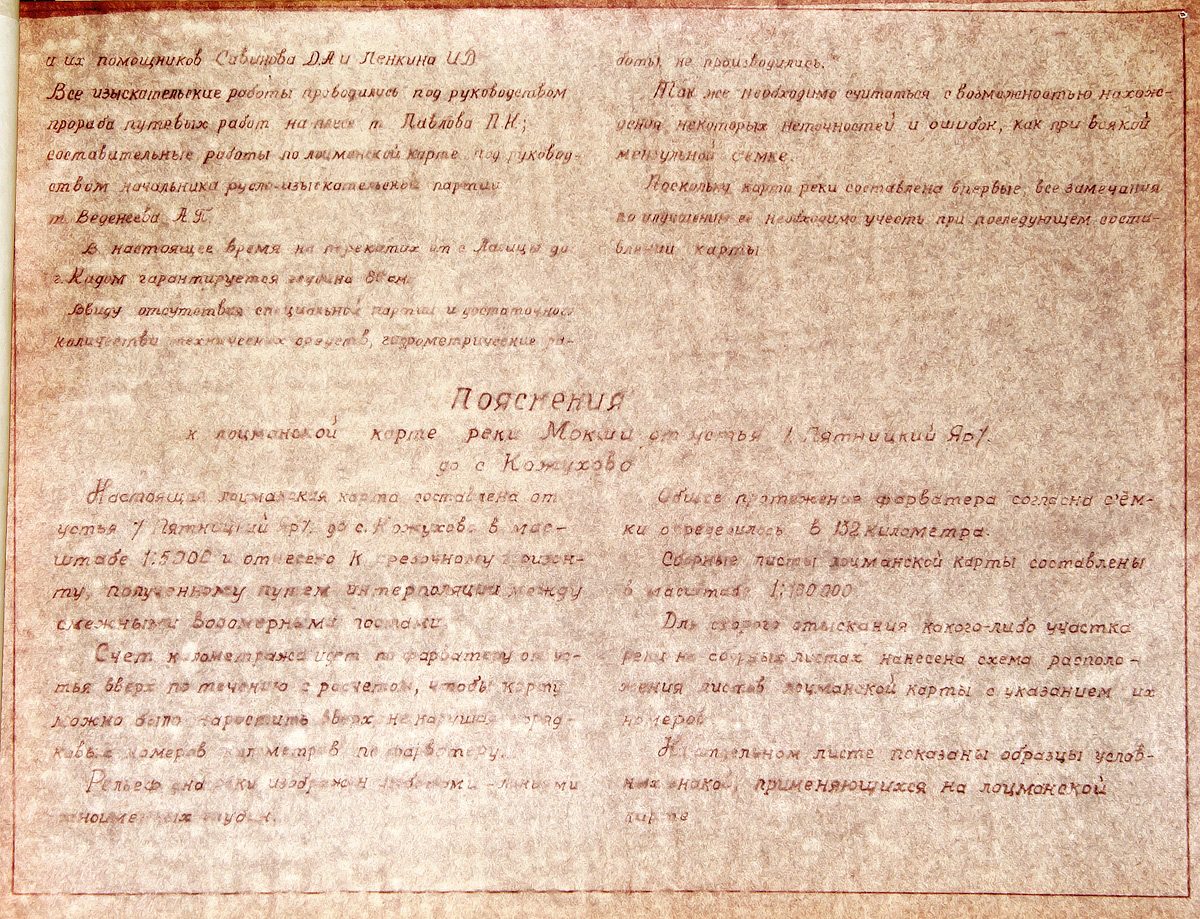 и их помощников Савинова Д.А и Пенкина И.Д
Все изыскательские работы проводились под руководством
прораба путевых работ на плесе т. Павлова П.И;
составительные работы по лоцманской карте под руковод-
ством начальника русло-изыскательской партии
т. Веденеева А.П.
В настоящее время на перекатах от с Лагицы до
г. Кадом гарантируется глубина 80 см
Ввиду отсутствия специальной партии и достаточного
количества технических средств, гидрометрические ра-
боты не производились.
Так же необходимо считаться с возможностью нахож-
дения некоторых неточностей и ошибок, как при всякой
мензульной с'емке.
Поскольку карта реки составлена впервые, все замечания
по улучшению ее необходимо учесть при последующем соста-
влении карты
Пояснения
к лоцманской карте реки Мокши от устья /Пятницкий Яр/.
до с Кожухово
Настоящая лоцманская карта составлена от
устья /Пятницкий яр/. до с. Кожухово в мас-
штабе 1:5000 и отнесено к срезочному горизон-
ту, полученному путем интерполяции между
смежными водомерными постами.
Счет километража идет по фарватеру от ус-
тья вверх по течению с расчетом, чтобы карту
можно было наростить вверх не нарушая поряд-
ковых номеров километров по фарватеру.
Рельеф дна реки изображен - линиями
глубин.
Общее протяжение фарватера согласно с'ём-
ки определилось в 132 километра.
Сборные листы лоцманской карты составлены
в масштабе 1:100 000
Для скорого отыскания какого-либо участка
реки на сборных листах нанесена схема располо-
жения листов лоцманской карты с указанием их
номеров
На отдельном листе показаны образцы услов-
ных знаков, применяющихся на лоцманской
карте